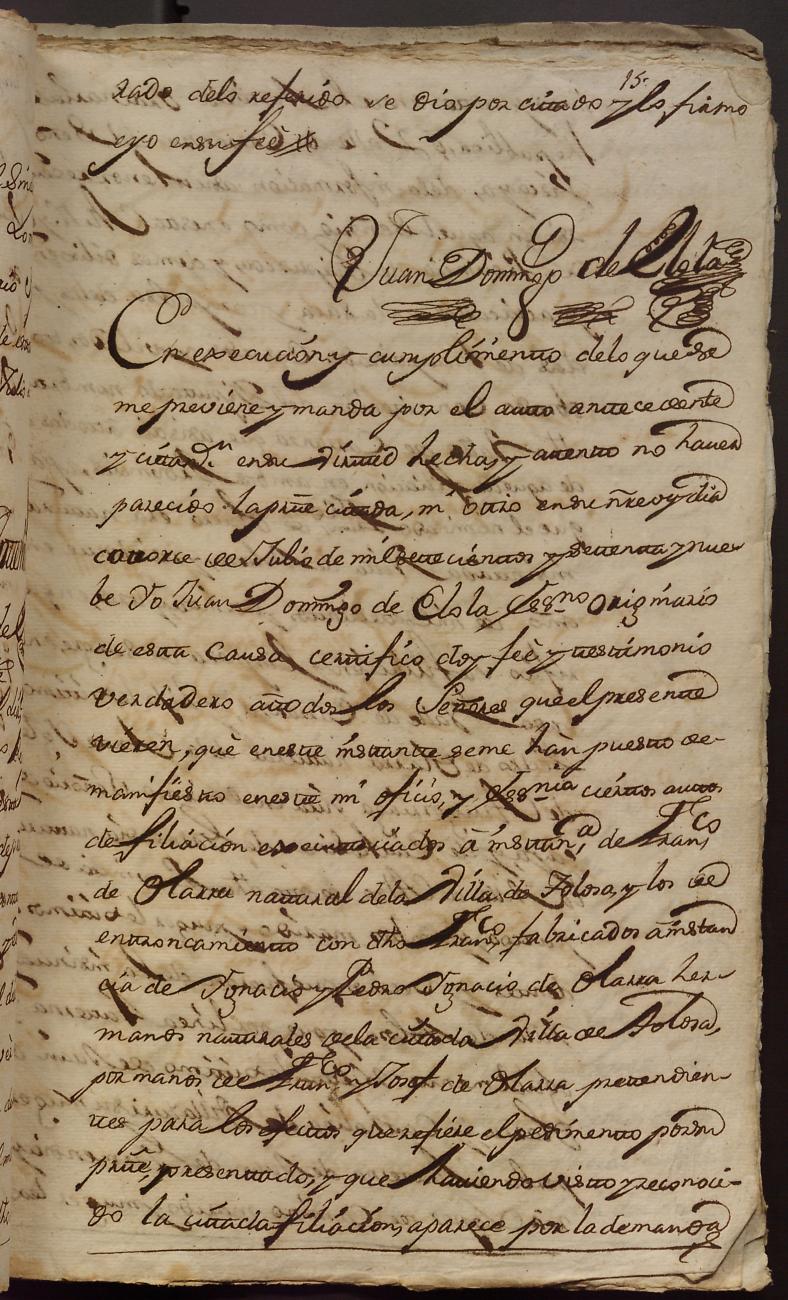 15.
rado delo referido se dio por citado y lo firmo
e yo en su feè
Juan Domingo de Elola
En execucion y cumplimento delo que se
me previene y manda por el auto antecedente
y citaz.n en su virtud hecha, y atento no haver
parecido la parte citada, ni otro en su nre oy dia
catorce de Julio de mil setecientos y setenta y nue-
be Yo Juan Domingo de Elola Essno originario
de esta Causa, certifico doy feè y testimonio
verdadero atodos los Señores que el presente
vieren, què eneste instante seme hàn puesto de
manifiesto eneste mi oficio, y Essnia ciertos autos
de filiación executoriados à instanª de Franco
de Olarra natural dela Villa de Tolosa, y los de
entroncamiento con dho Franco fabricados à instan
cia de Ignacio y Pedro Ignacio de Olarra her-
manos naturales dela citada Villa de Tolosa,
por manos de Franco y Josef de Olarra pretendien-
tes para los efectos que refiere el pedimento por su
prte presentado, y que haviendo visto y reconoci-
do la citada filiación, aparece por la demanda